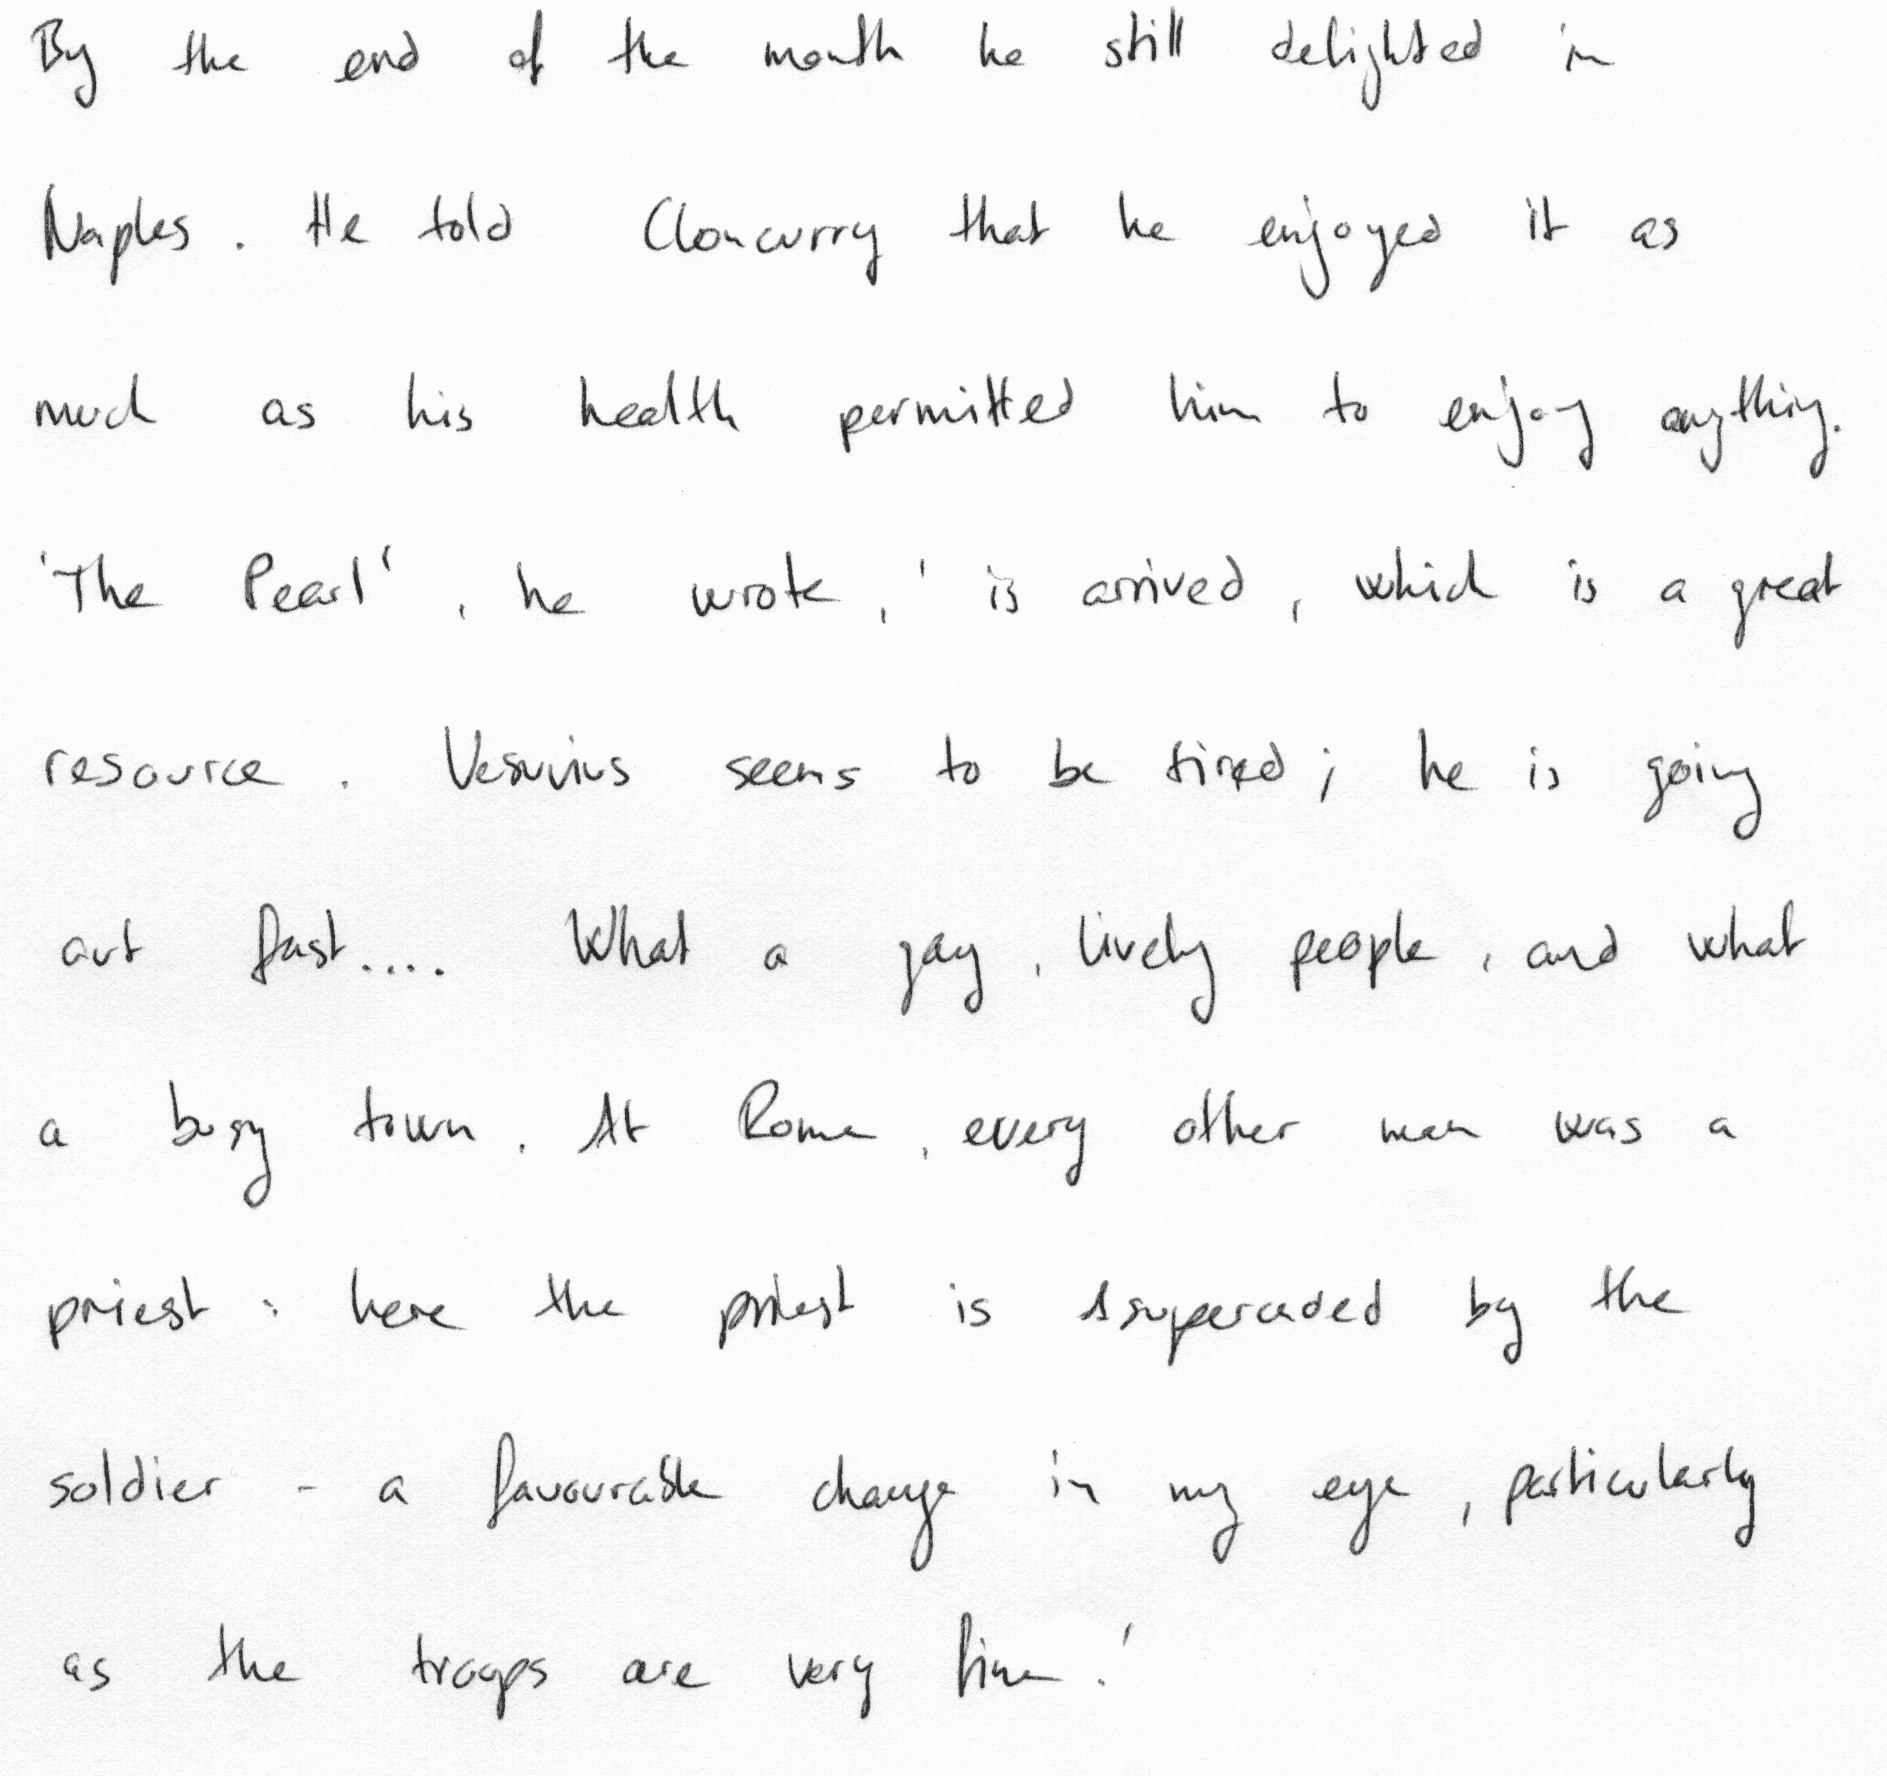 By the end of the month he still delighted in
Naples. He told Cloncurry that he enjoyed it as
much as his health permitted him to enjoy anything.
'The Pearl', he wrote, 'is arrived, which is a great
resource. Vesuvius seems to be tired; he is going
out fast.... What a gay, lively people, and what
a busy town. At Rome, every other man was a
priest: here the priest is superceded by the
soldier - a favourable change in my eye, particularly
as the troops are very fine.'